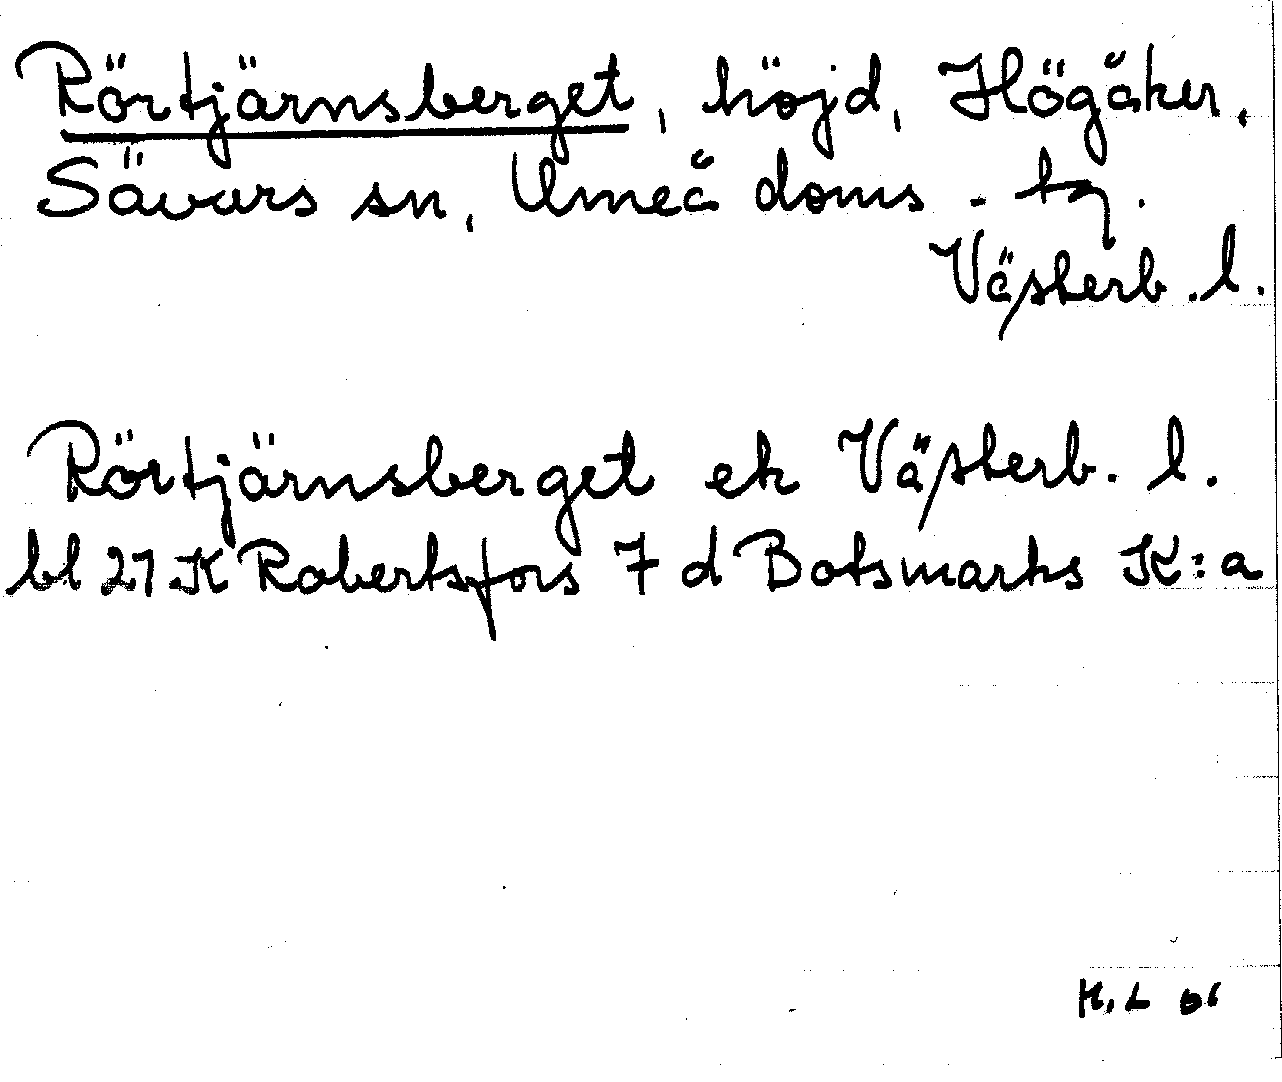 Rörtjärnsberget, höjd, Högåker,
Sävars sn, Umeå doms. tg.
Västerb. l.
Rörtjärnsberget ek Västerb. l.
bl 27 K Robertsfors 7 d Botsmarks K:a
H. L